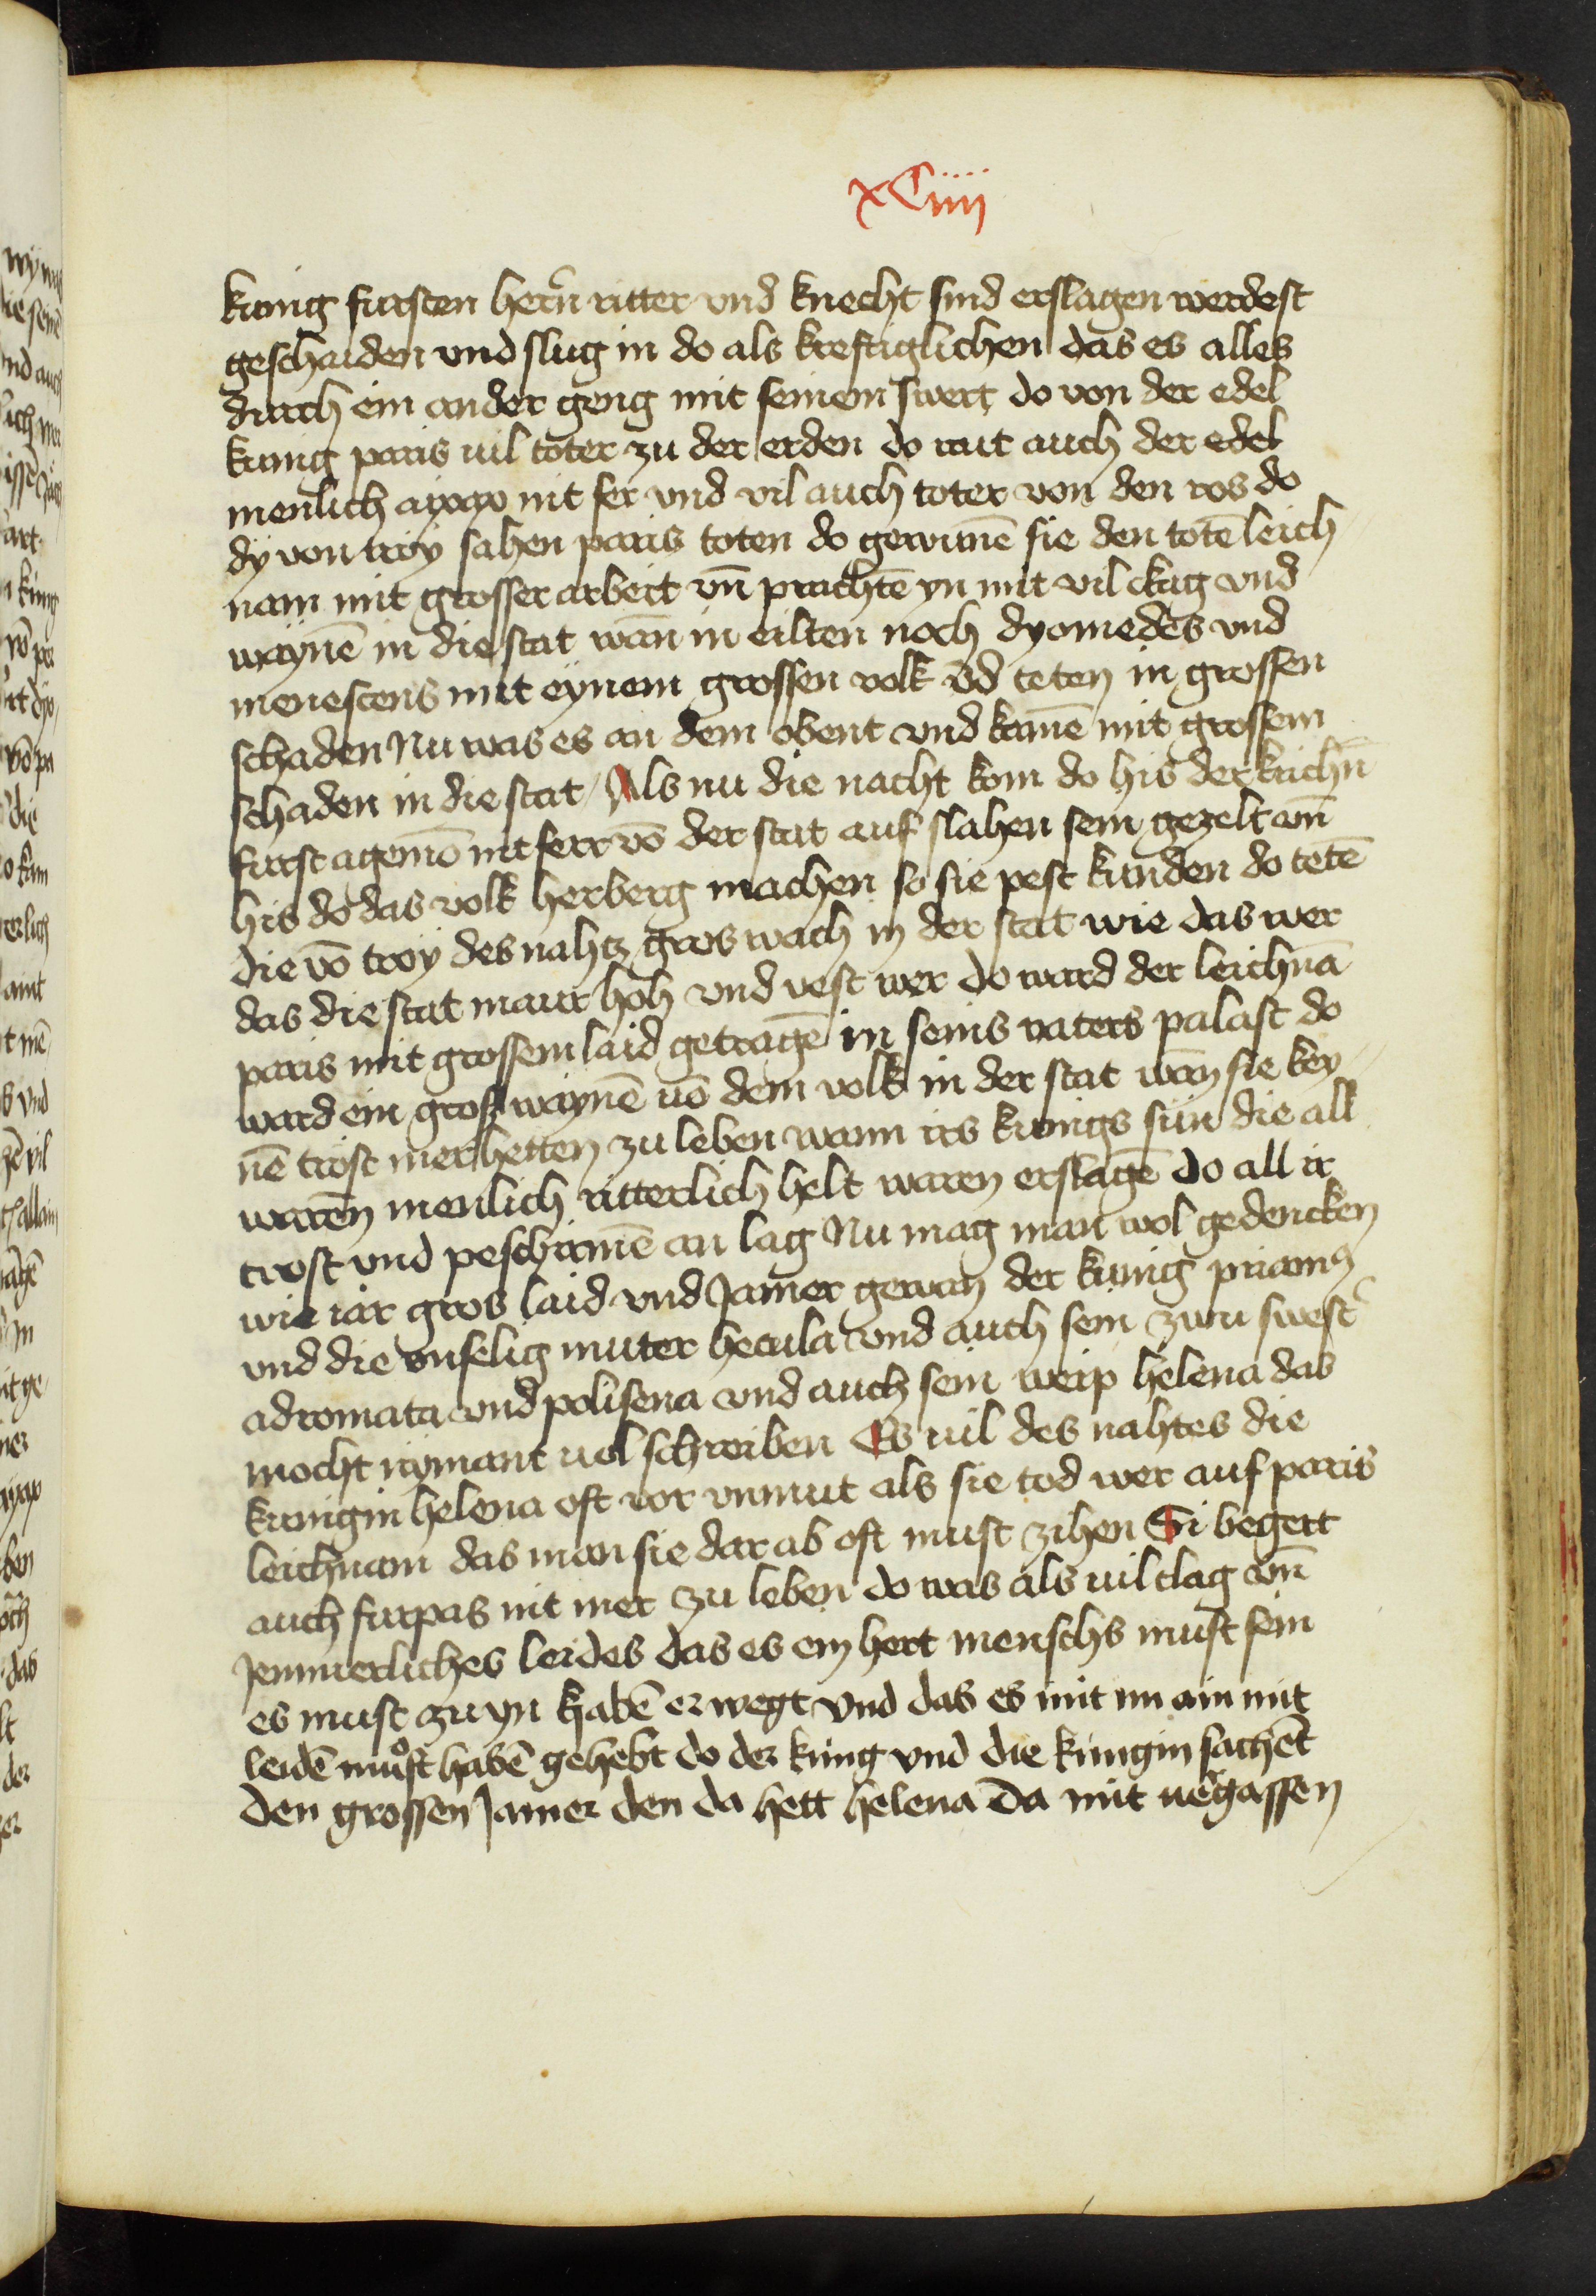 xCiiij
kunig fursten hern̄ ritter vnd knecht sind erslagen werdest
geschaiden vnd slug in do als kreftiglichen das es alles
durch ein ander geng mit seinem swert do von der edel
kunig paris uil toter zu der erden do rait auch der edel
menlich ayax nit fer vnd vil auch toter von den ros do
dy von troy sahen paris toten do gewunē sie den totē leich
nam mit grosser arbeit vn̄ prachtē yn mit vil clag vnd
waynē in die stat wan̄ in eilten noch dyomedes vnd
menesteus mit eynem grossen volk v̄d teten in grossen
schaden Nu was es an dem obent vnd kamē mit grossem
schaden in die stat / Als nu die nacht kom do his der krichn̄
furst agemō nit ferr vō der stat auf slahen sein gezelt vn̄
his do das volk herberg machen so sie pest kunden do tetē
die vō troy des nahtz gros wach in der stat wie das wer
das die stat maur hoh vnd vest wer do ward der leichnā
paris mit grossem laid getragē in seins vaters palast do
ward ein gross waynē uō dem volk in der stat wan sie key
nē trost mer hetten zu leben wann irs kunigs sün die all
waren menlich ritterlich helt waren erslagē do all ir
trost vnd peschirmē an lag Nu mag man wol gedencken
wie gar gros laid vnd Jamer gewan der kunig priamꝰ
vnd die vnselig muter hecula vnd auch sein zwu swest
adromata vnd polisena vnd auch sein weip helena das
mocht nymant uol schreiben Es uil des nahtes die
kunigin helena oft vor vnmut als sie tod wer auf paris
leichnam das man sie dar ab oft must zihen Si begert
auch furpas nit mer zu leben do was als uil clag vn̄
Jemmerliches leides das es ein hert menschs must sein
es must zu yn habē erwegt vnd das es mit im ain mit
leidē muͦst habē gehebt do der kunig vnd die kunigin sachēt
den grossen Jamer den da hett helena da mit uergassen